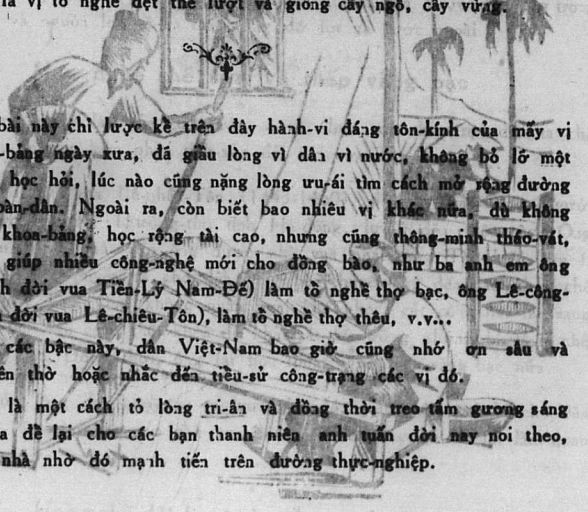 là vị tổ nghề dệt the lượt và giống cây ngô, cây vừng.
bài này chỉ lược kề trên đây hành-vi đáng tôn-kính của mấy vị
-bảng ngày xưa, đã giầu lòng vì dân vì nước, không bỏ lỡ một
học hỏi, lúc nào cũng nặng lòng ưu-ái tìm cách mở rộng đường
toàn-dân. Ngoài ra, còn biết bao nhiêu vị khác nữa, dù không
khoa-bảng, học rộng tài cao, nhưng cũng thông-minh tháo-vát,
giúp nhiều công-nghệ mới cho đồng bào, như ba anh em ông
đời vua Tiền-Lý Nam-Đế) làm tổ nghề thợ bạc, ông Lê-công-
đời vua Lê-chiêu-Tôn), làm tổ nghề thợ thêu, v.v...
các bậc này, dân Việt-Nam bao giờ cũng nhớ ơn sâu và
thờ hoặc nhắc đến tiều-sử công-trạng các vị đó.
là một cách tỏ lòng tri-ân và đồng thời treo tấm gương sáng
đề lại cho các bạn thanh niên anh tuấn đời nay noi theo,
nhà nhờ đó mạnh tiến trên đường thực-nghiệp.